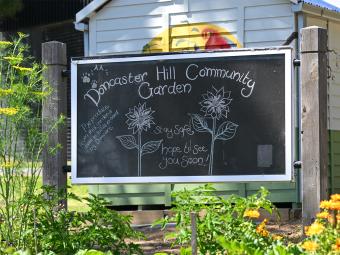 Doncaster Hill Community
Garden
Stay Safe
hope to see
you soon!